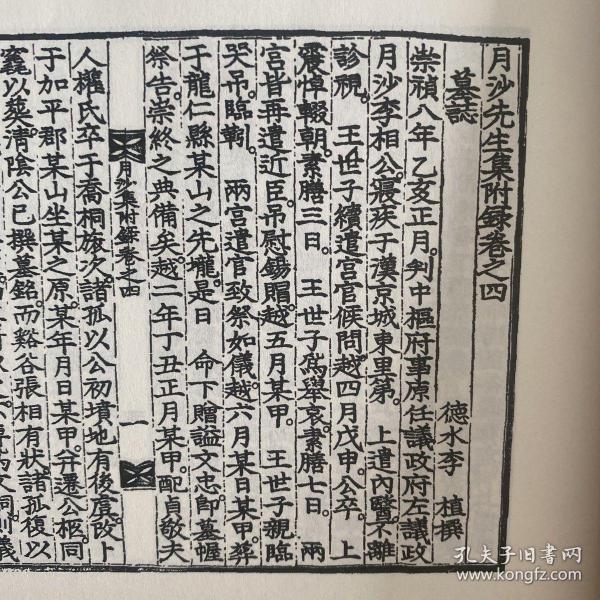 月沙先生集附錄卷之四
墓誌
德水李 植撰
崇禎八年乙亥正月。判中樞府事原任議政府左議政
月沙李相公。寢疾于漢京城東里第。 上遣內醫不離
診視。 王世子續遣宮官候問。越四月戊申。公卒。 上
震悼輟朝。素膳三日。 王世子爲舉哀。素膳七日。 兩
宮皆再遣近臣。吊慰錫賵。越五月某甲。 王世子親臨
哭吊。臨輀。 兩宮遣官致祭如儀。越六月某日某甲。葬
于龍仁縣某山之先壠。是日 命下贈謚文忠。卽墓幄
祭告。崇終之典備矣。越二年丁丑正月某甲。配貞敬夫
月沙集附錄卷之四 一
人權氏卒于喬桐旅次。諸孤以公初墳地有後虞。改卜
于加平郡某山坐某之原。某年月日某甲。幷遷公柩同
窆以葬。淸陰公已撰墓銘。而谿谷張相有狀。諸孤復以
孔夫子旧書网
www.kongfz.com